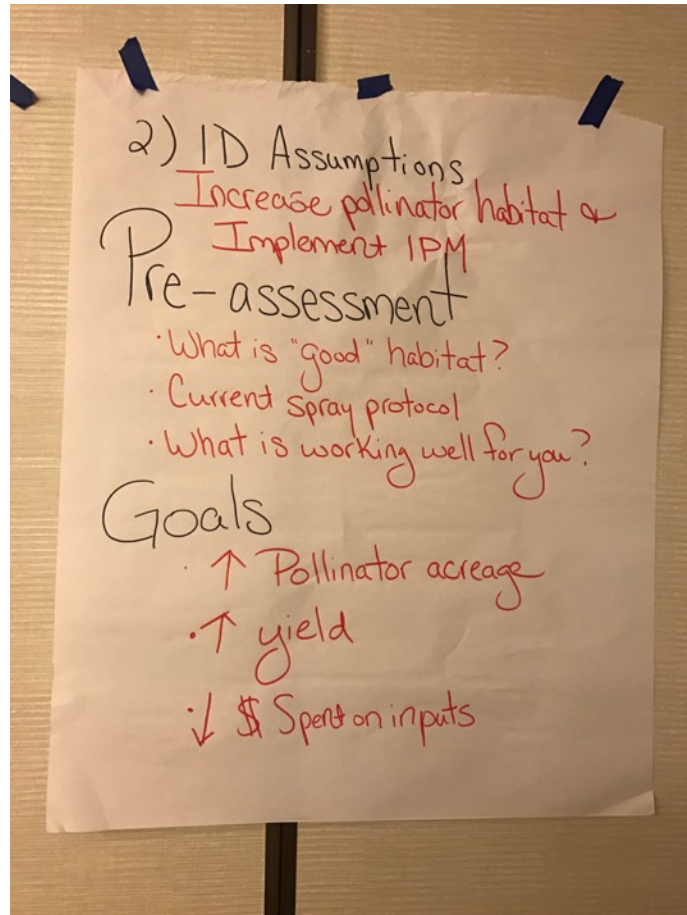 2) ID Assumptions
Increase pollinator habitat &
Implement IPM
Pre-assessment
· What is "good" habitat?
· Current spray protocol
· What is working well for you?
Goals
· ↑ Pollinator acreage
· ↑ yield
· ↓ $ Spent on inputs